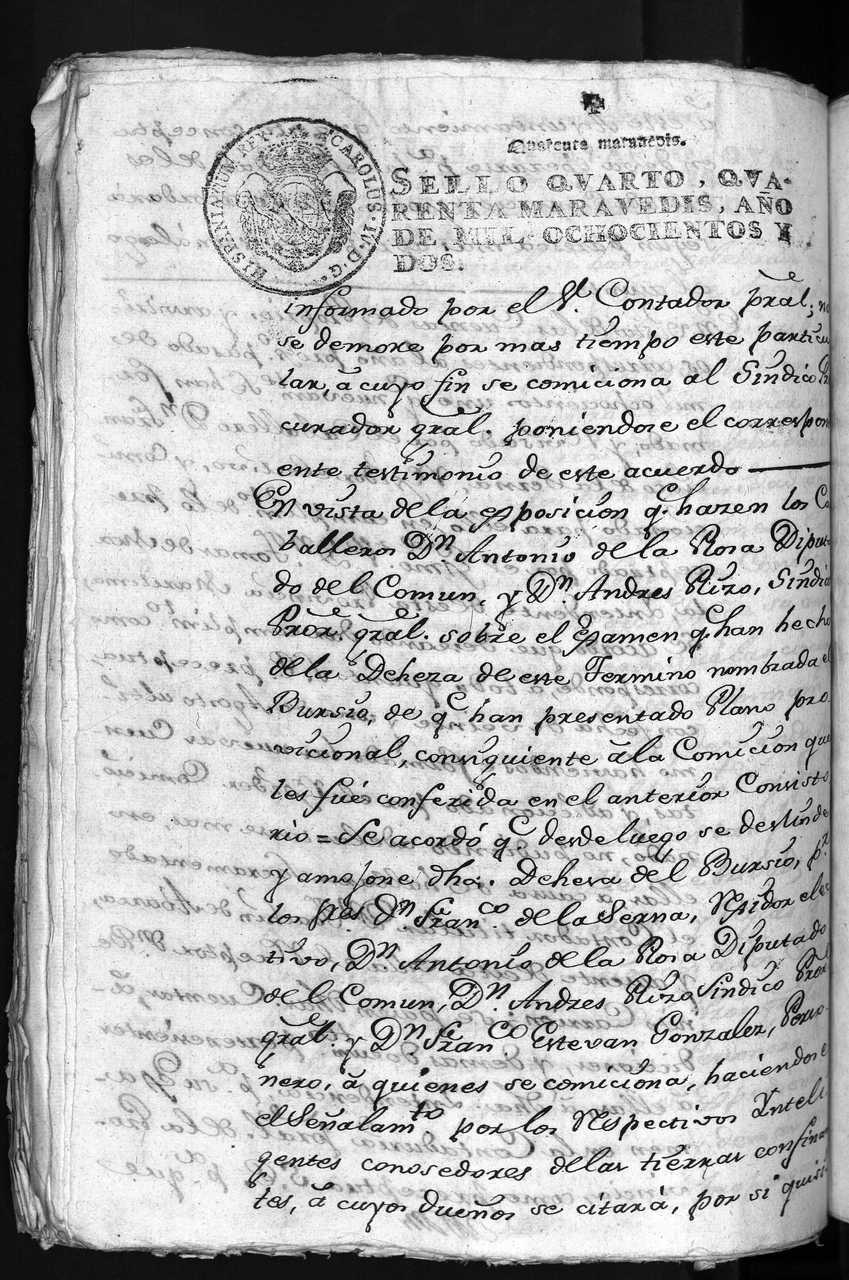 HISPANIARUM REX
CAROLUS · IV · D · G ·
Quarenta marauedis.
SELLO QVARTO, QVA-
RENTA MARAVEDIS, AÑO
DE MIL OCHOCIENTOS Y
DOS.
informado por el Sr. Contador pral, no
se demore por mas tiempo este particu
lar, â cuyo fin se comiciona al Sindico Pro
curador gral. poniendose el correspon
ente testimonio de este acuerdo
En vista dela esposicion q.e hazen los Ca
balleros Dn Antonio de la Rosa Diputa
do del Comun, y Dn Andres Rizo, Sindico
Pror gral. sobre el esamen q.e han hecho
dela Deheza de este Termino nombrada el
Bursio, de q.e han presentado Plano pro
vicional, consiguiente âla Comicion que
les fué conferida en el anterior Consisto
rio = Se acordó q.e desde luego se deslinde
y amojone dha. Deheva del Bursio, p.r
los sres. Dn Fran.co de la Serna, Residor elec
tivo, Dn Antonio de la Rosa Diputado
del Comun, Dn Andres Rizo Sindico Pror
gral y Dn Fran.co Estevan Gonzalez, Perso
nero, â quienes se comiciona, haciendose
el Señalamto por los Respectivos Ynteli
gentes conosedores delas tierras confinan
tes, â cuyos dueños se citará, por si quisi